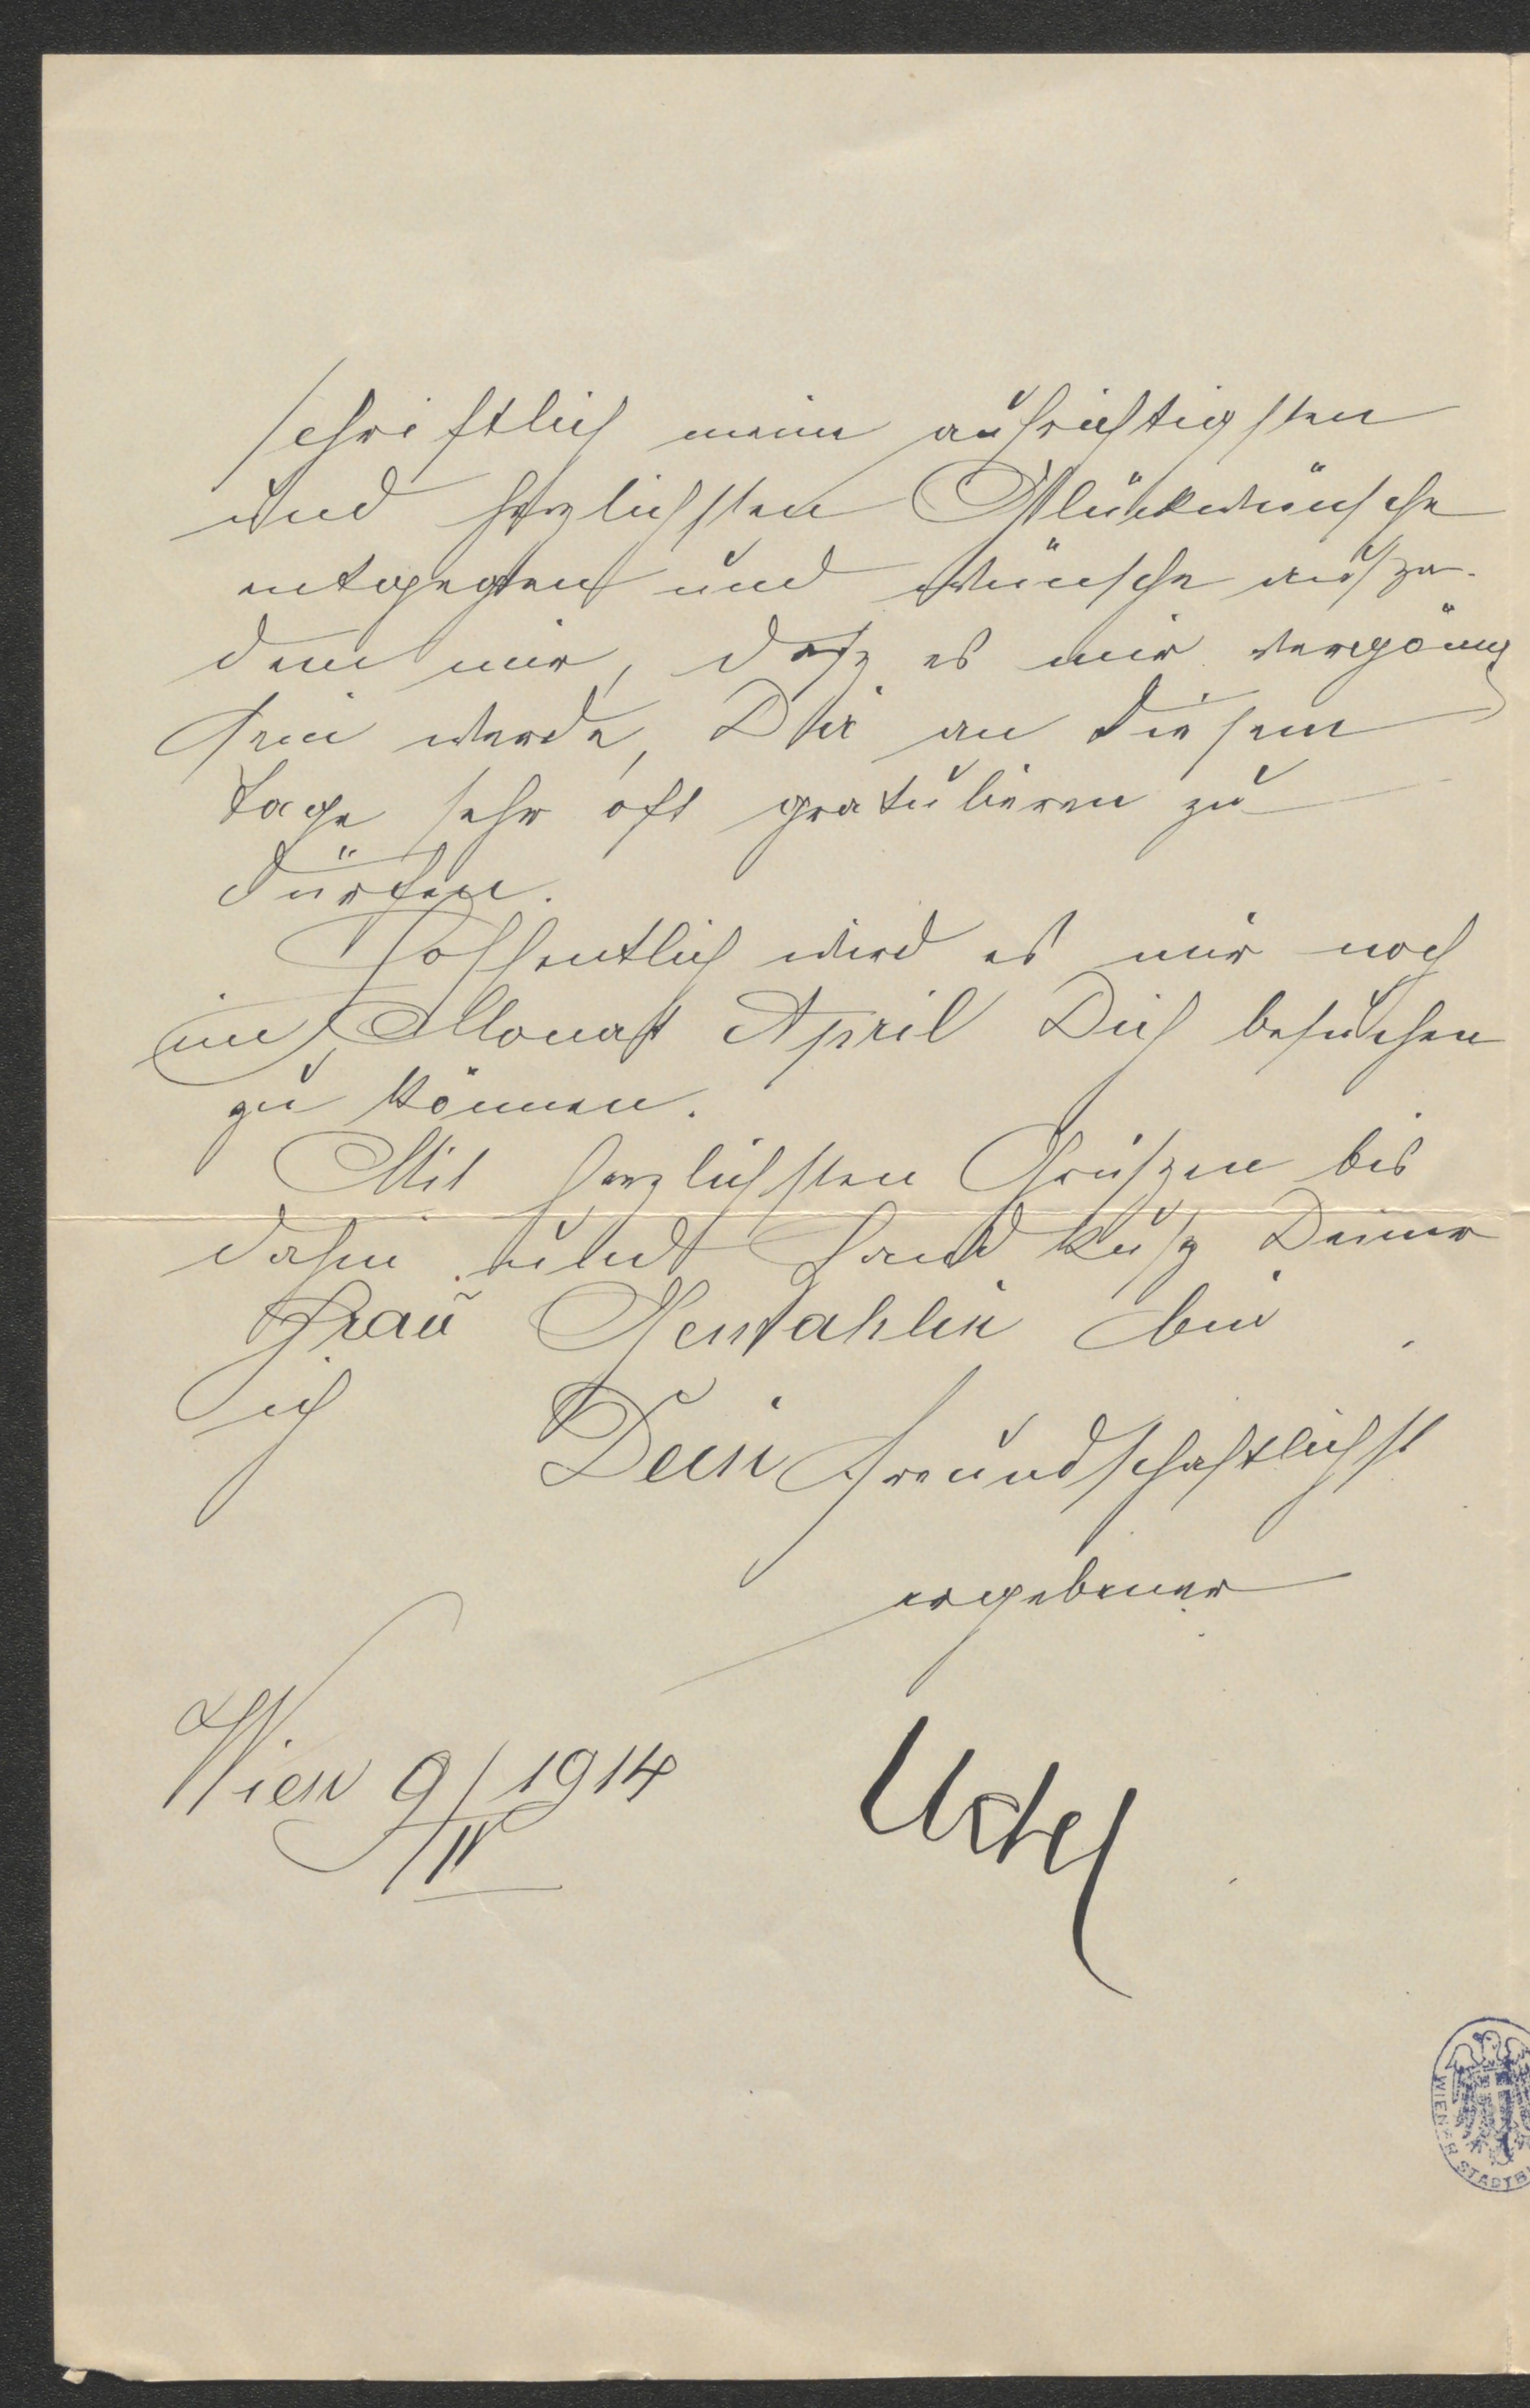 schriftlich meine aufrichtigsten
und herzlichsten Glückwünsche
entgegen und wünsche aufzer-
dem mir, dasz es mir vergönnt
sein werde, Dir an diesem
Tage sehr oft gratulieren zu
dürfen.
Hoffentlich wird es mir noch
im Monat April Dich besuchen
zu können.
Mit herzlichsten Grüszen bis
dahin und Handkusz Deiner
Frau Gemahlin bin
ich Dein freundschaftlichst
ergebener
Wien 9/IV 1914
Udel
WIENER STADTB